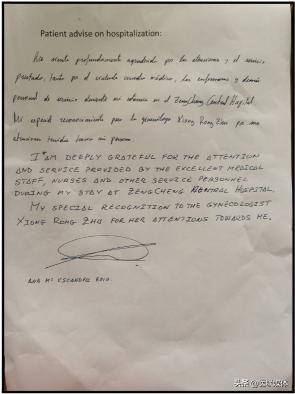 Patient advise on hospitalization:
Me siento profundamente agradecida por las atenciones y el servicio
prestado, tanto por el excelente cuerpo médico, las enfermeras y demás
personal de servicio durante mi estancia en el ZengCheng Central Hospital.
Mi especial reconocimiento para la ginecóloga Xiong Rong Zhu por sus
atenciones tenidas hacia mi persona.
I'AM DEEPLY GRATEFUL FOR THE ATTENTION
AND SERVICE PROVIDED BY THE EXCELLENT MEDICAL
STAFF, NURSES AND OTHER SERVICE PERSONNEL
DURING MY STAY AT ZENGCHENG HOSPITAL.
MY SPECIAL RECOGNITION TO THE GYNECOLOGIST
XIONG RONG ZHU FOR HER ATTENTIONS TOWARDS ME.
ANA Mª
头条